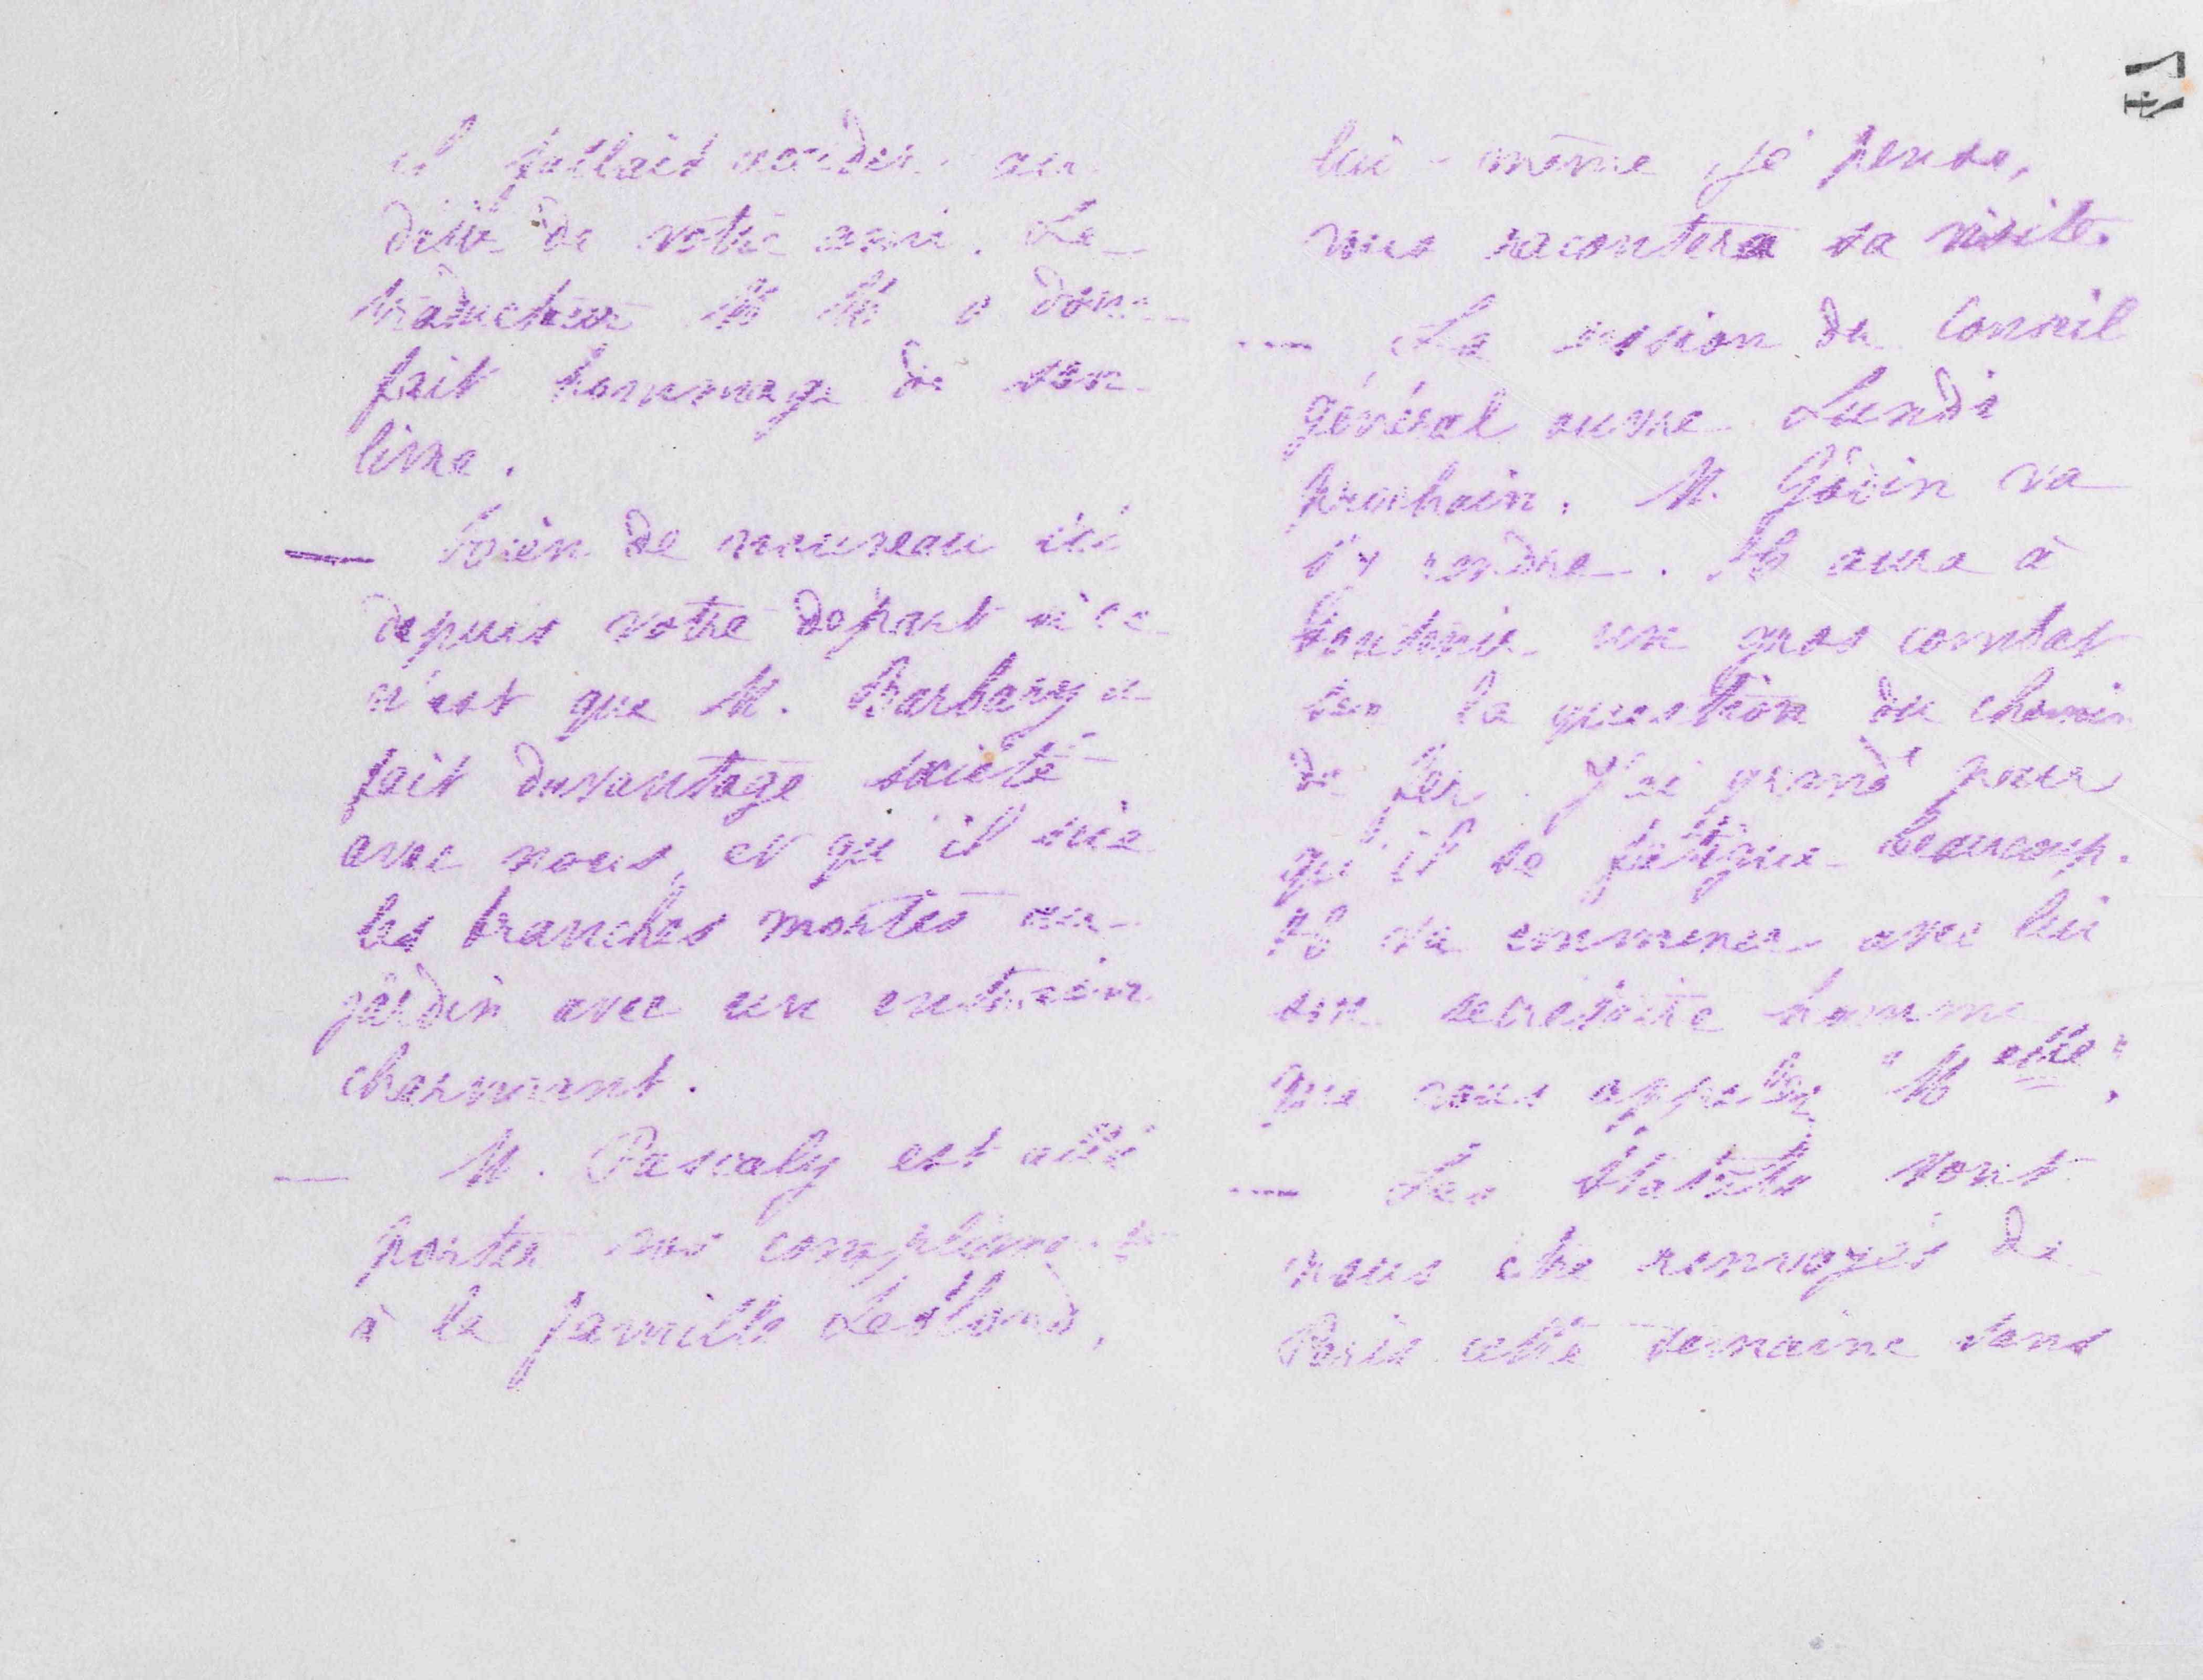 il fallait accéder au
désir de votre ami. Le
traducteur lui a donc
fait hommage de son
livre.
— Rien de nouveau ici
depuis votre départ si ce
n'est que M. Barbary a
fait davantage société
avec nous, et qu'il scie
les branches mortes au
jardin avec un entrain
charmant.
— M. Pascaly est allé
porter vos compliments
à la famille Leblond,
lui-même, je pense,
vous racontera sa visite.
— La session du Conseil
général ouvre Lundi
prochain. M. Godin va
s'y rendre. Il aura à
soutenir un gros combat
sur la question du chemin
de fer. J'ai grand peur
qu'il se fatigue beaucoup.
Il va emmener avec lui
son secrétaire homme
que vous appelez "Melle".
— Les Statuts vont
nous être renvoyés de
Paris cette semaine sans